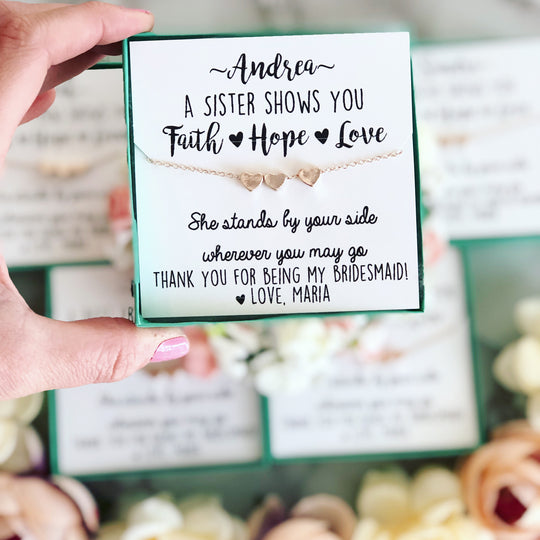 ~Andrea~
A SISTER SHOWS YOU
Faith ♥ Hope ♥ Love
She stands by your side
wherever you may go
THANK YOU FOR BEING MY BRIDESMAID!
♥ LOVE, MARIA